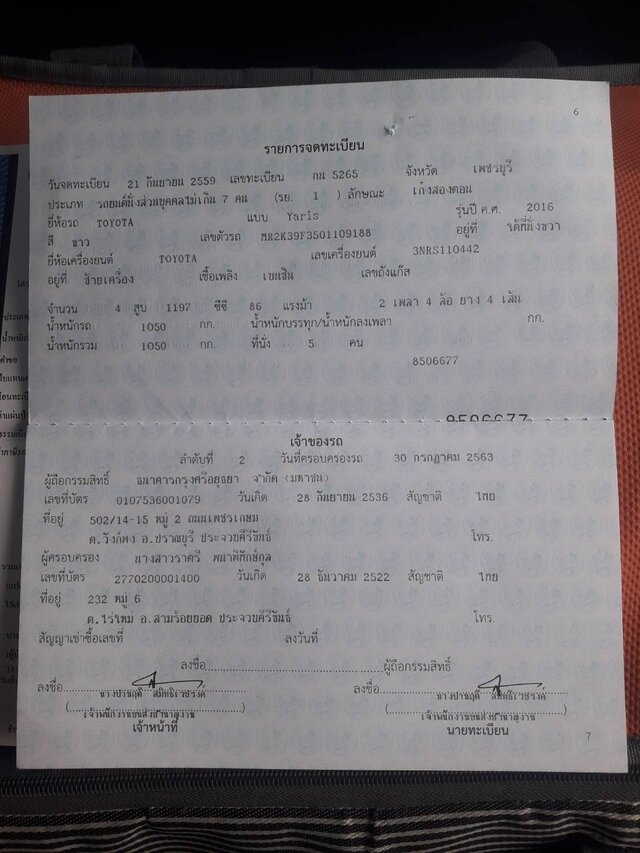 6
รายการจดทะเบียน
วันจดทะเบียน 21 กันยายน 2559 เลขทะเบียน กน 5265 จังหวัด เพชรบุรี
ประเภท รถยนต์นั่งส่วนบุคคลไม่เกิน 7 คน (รย. 1 ) ลักษณะ เก๋งสองตอน
ยี่ห้อรถ TOYOTA แบบ Yaris รุ่นปี ค.ศ. 2016
สี ขาว เลขตัวรถ MR2K39F3501109188 อยู่ที่ ใต้ที่นั่งขวา
ยี่ห้อเครื่องยนต์ TOYOTA เลขเครื่องยนต์ 3NRS110442
อยู่ที่ ซ้ายเครื่อง เชื้อเพลิง เบนซิน เลขถังแก๊ส
จำนวน 4 สูบ 1197 ซีซี 86 แรงม้า 2 เพลา 4 ล้อ ยาง 4 เส้น
น้ำหนักรถ 1050 กก. น้ำหนักบรรทุก/น้ำหนักลงเพลา กก.
น้ำหนักรวม 1050 กก. ที่นั่ง 5 คน
8506677
8506677
เจ้าของรถ
ลำดับที่ 2 วันที่ครอบครองรถ 30 กรกฎาคม 2563
ผู้ถือกรรมสิทธิ์ ธนาคารกรุงศรีอยุธยา จำกัด (มหาชน)
เลขที่บัตร 0107536001079 วันเกิด 28 กันยายน 2536 สัญชาติ ไทย
ที่อยู่ 502/14-15 หมู่ 2 ถนนเพชรเกษม
ต.วังก์พง อ.ปราณบุรี ประจวบคีรีขันธ์ โทร.
ผู้ครอบครอง นางสาวราตรี พนาพิทักษ์กุล
เลขที่บัตร 2770200001400 วันเกิด 28 ธันวาคม 2522 สัญชาติ ไทย
ที่อยู่ 232 หมู่ 6
ต.ไร่ใหม่ อ.สามร้อยยอด ประจวบคีรีขันธ์ โทร.
สัญญาเช่าซื้อเลขที่ ลงวันที่
ลงชื่อ ผู้ถือกรรมสิทธิ์
ลงชื่อ ลงชื่อ
เจ้าพนักงานขนส่งชำนาญงาน เจ้าพนักงานขนส่งชำนาญงาน
เจ้าหน้าที่ นายทะเบียน
7